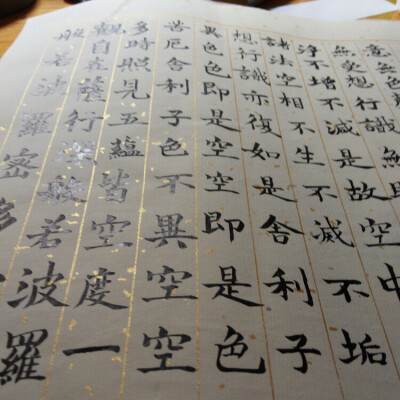 般若波羅密多
觀自在薩行深般若波羅
多時照見五蘊皆空度一
苦厄舍利子色不異空空
異色色即是空空即是色
想行識亦復如是舍利子
諸法空相不生不滅不垢
淨不增不滅是故空中
無受想行識無眼
意無色